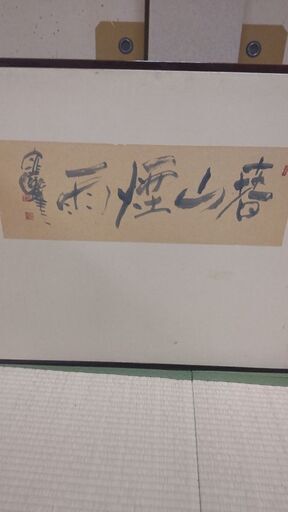 春山煙雨